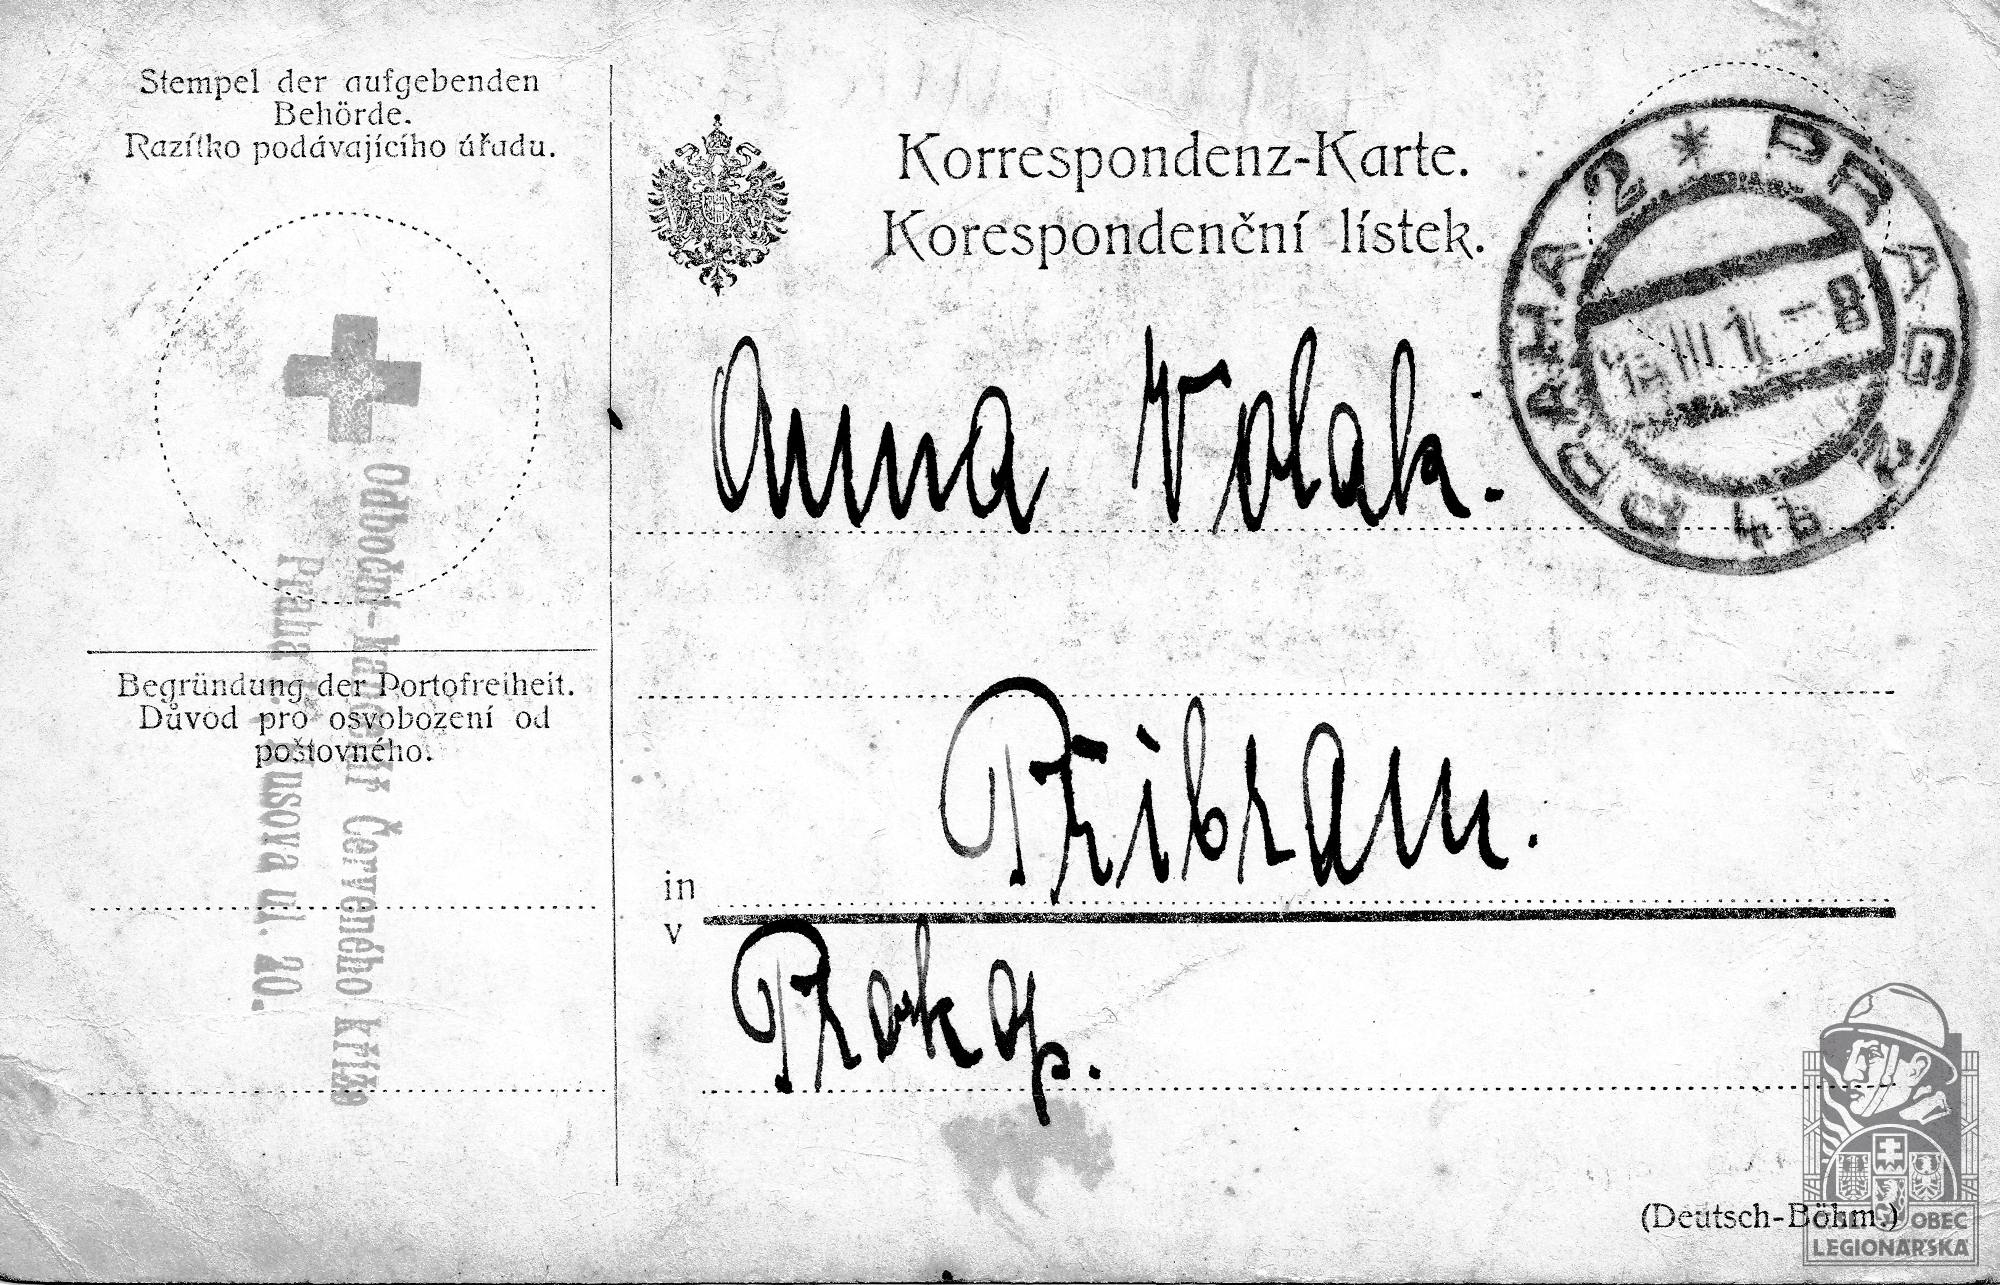 Stempel der aufgebenden
Behörde.
Razítko podávajícího úřadu.
Odboční-
Červeného kříže
Praha
Husova ul. 20.
Begründung der Portofreiheit.
Důvod pro osvobození od
poštovného.
Korrespondenz-Karte.
Korespondenční lístek.
2 * PRAG
PRAHA
III 1 -8
Anna Volak.
in
v
Přibram.
Prokop.
(Deutsch-Böhm.)
OBEC
LEGIONÁŘSKÁ